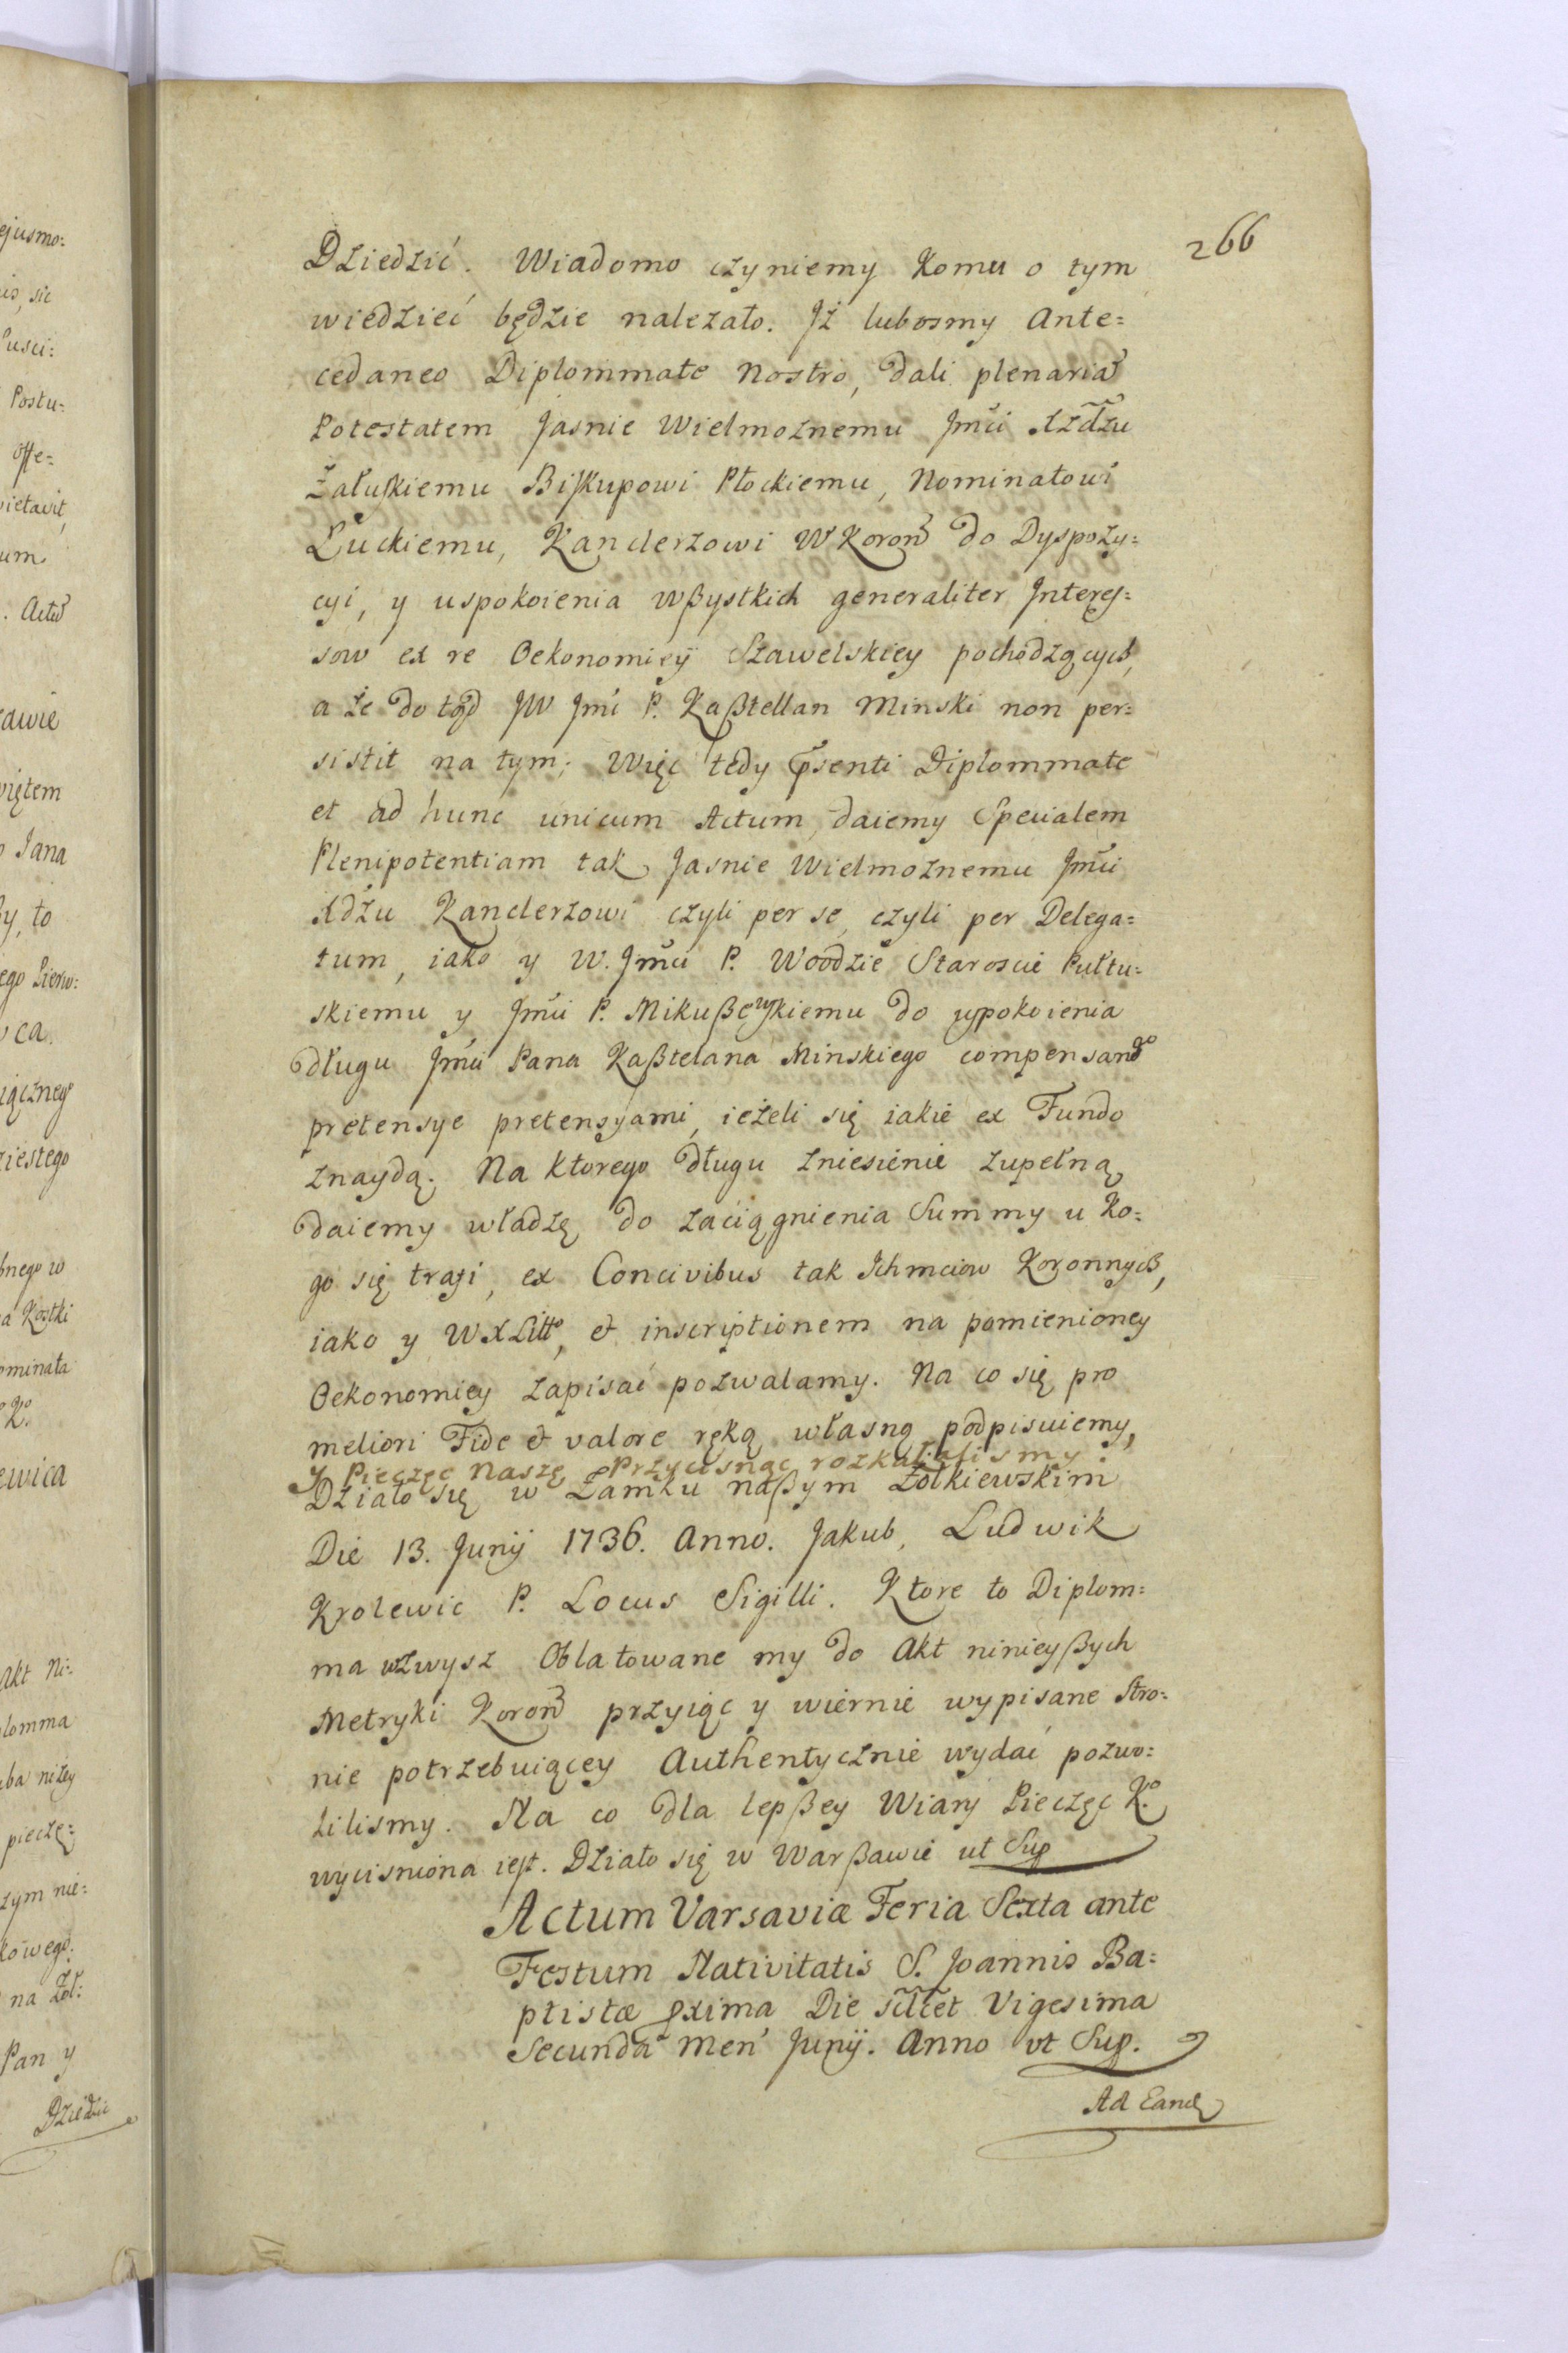 266
Dziedzić. Wiadomo czyniemy Komu o tym
wiedzieć będzie nalezało. Jż lubosmy Ante=
cedaneo Diplommate Nostro, dali plenariã
Potestatem Jasnie Wielmoznemu Jmci Xzdzu
Załuskiemu Biskupowi Płockiemu, Nominatowi
Łuckiemu, Kanclerzowi WKoroñ do Dyspozy=
cyi, y uspokoienia wßystkich generaliter Interes=
sow ex re Oekonomiey Szawelskiey pochodzących,
a że do tąd JW Jmć P. Kaßtellan Minski non per=
sistit na tym; Więc tedy p̃senti Diplommate
et ad hunc unicum Actum, daiemy Specialem
Plenipotentiam tak Jasnie Wielmoznemu Jmci
Xdzu Kanclerzowi czyli per se, czyli per Delega=
tum, iako y W. Jmci P. Woodzie Staroscie Pułtu=
skiemu y Jmci P. Mikußewskiemu do uspokoienia
długu Jmci Pana Kaßtelana Minskiego compensando
pretensye pretensyami, ieżeli się iakie ex Fundo
znaydą. Na ktorego długu zniesienie zupełną
daiemy władzę do zaciągnienia Summy u Ko=
go się trafi, ex Concivibus tak Ichmciow Koronnych,
iako y WXLitto, et inscriptionem na pomienioney
Oekonomiey zapisać pozwalamy. Na co się pro
meliori Fide et valore ręką własną podpisuiemy,
y Pieczęc Naszę Przycisnąc rozkazalismy.
Działo się w Zamku naßym Żołkiewskim
Die 13. Junij 1736. Anno. Jakub, Ludwik
Krolewic P. Locus Sigilli. Ktore to Diplom=
ma wzwysz Oblatowane my do Akt ninieyßych
Metryki Koroñ przyiąc y wiernie wypisane Stro=
nie potrzebuiącey Authentycznie wydać pozwo=
lilismy. Na co dla lepßey Wiary Pieczęc K.o
wycisniona iest. Działo się w Warßawie ut Sup
Actum Varsaviæ Feria Sexta ante
Festum Nativitatis S. Joannis Ba=
ptistæ pxima Die scilcet Vigesima
Secunda Men Junij. Anno vt Sup.
Ad Eand